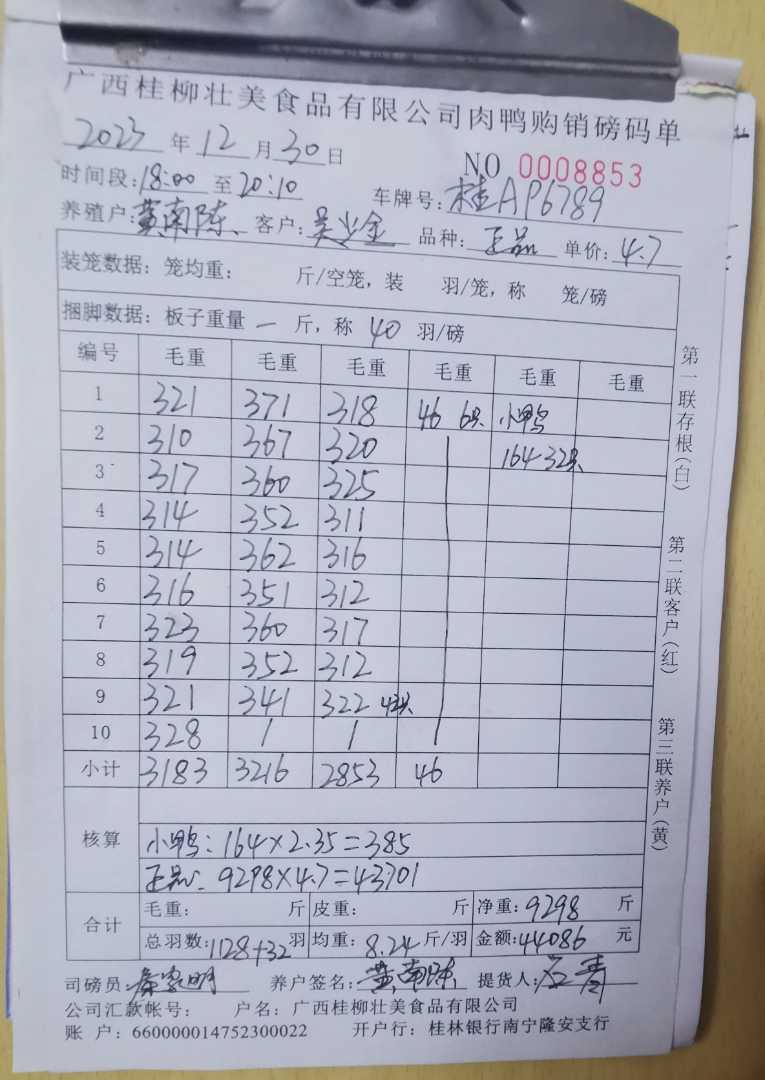 广西桂柳壮美食品有限公司肉鸭购销磅码单
2023 年 12 月 30 日 NO 0008853
时间段:18:00 至 20:10 车牌号:桂AP6789
养殖户:黄南陈 客户:吴少金 品种:正品 单价:4.7
装笼数据:笼均重: 斤/空笼,装 羽/笼,称 笼/磅
捆脚数据:板子重量 一 斤,称 40 羽/磅
编号 毛重 毛重 毛重 毛重 毛重 毛重
1 321 371 318 46 6只 小鸭
2 310 367 320 164-32只
3 317 360 325
4 314 352 311
5 314 362 316
6 316 351 312
7 323 360 317
8 319 352 312
9 321 341 322 42只
10 328 / /
小计 3183 3216 2853 46
核算
小鸭:164×2.35=385
正品:9298×4.7=43701
合计
毛重: 斤 皮重: 斤 净重:9298 斤
总羽数:1128+32羽 均重:8.24斤/羽 金额:44086 元
司磅员: 养户签名:黄南陈 提货人:
公司汇款帐号: 户名:广西桂柳壮美食品有限公司
账 户:660000014752300022 开户行:桂林银行南宁隆安支行
第一联存根(白)
第二联客户(红)
第三联养户(黄)